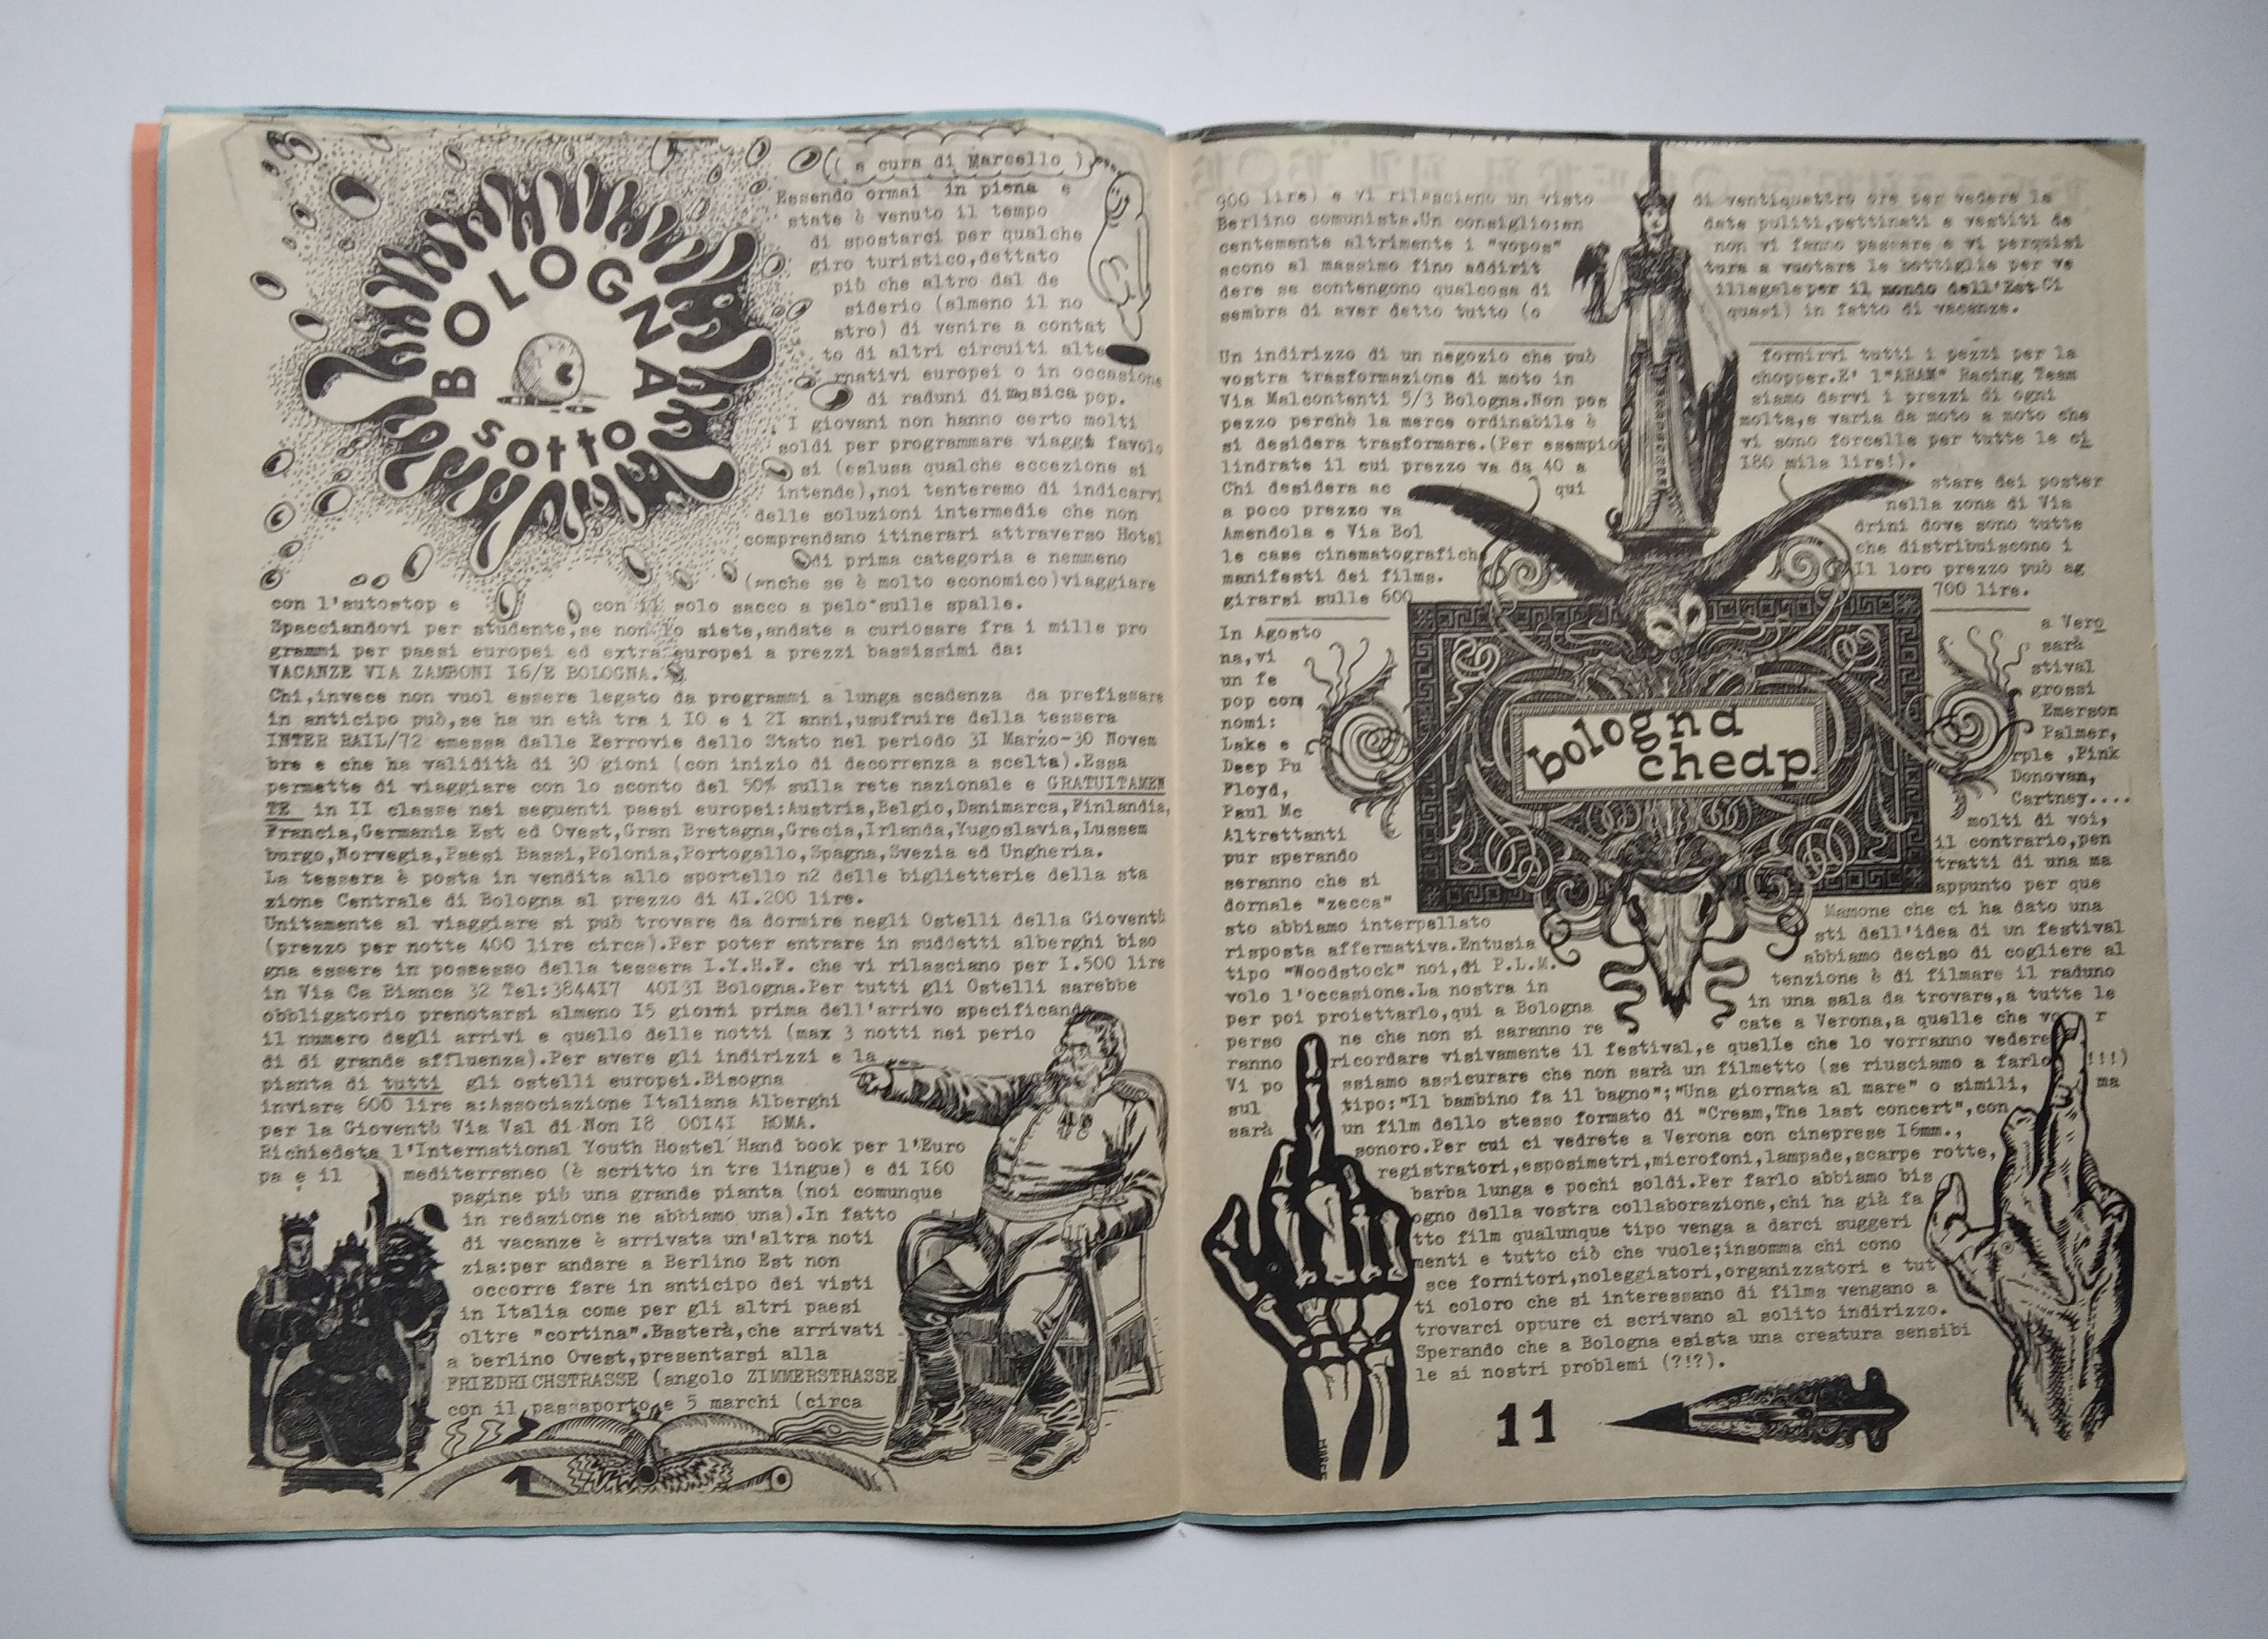 BOLOGNA
sotto
( a cura di Marcello )
Essendo ormai in piena e
state è venuto il tempo
di spostarci per qualche
giro turistico,dettato
più che altro dal de
siderio (almeno il no
stro) di venire a contat
to di altri circuiti alte
rnativi europei o in occasione
di raduni di musica pop.
I giovani non hanno certo molti
soldi per programmare viaggi favolo
si (eslusa qualche eccezione si
intende),noi tenteremo di indicarvi
delle soluzioni intermedie che non
comprendano itinerari attraverso Hotel
di prima categoria e nemmeno
(anche se è molto economico)viaggiare
con l'autostop e con il solo sacco a pelo sulle spalle.
Spacciandovi per studente,se non lo siete,andate a curiosare fra i mille pro
grammi per paesi europei ed extra europei a prezzi bassissimi da:
VACANZE VIA ZAMBONI I6/E BOLOGNA.
Chi,invece non vuol essere legato da programmi a lunga scadenza da prefissare
in anticipo può,se ha un età tra i IO e i 2I anni,usufruire della tessera
INTER RAIL/72 emessa dalle Ferrovie dello Stato nel periodo 3I Marzo-30 Novem
bre e che ha validità di 30 gioni (con inizio di decorrenza a scelta).Essa
permette di viaggiare con lo sconto del 50% sulla rete nazionale e GRATUITAMEN
TE in II classe nei seguenti paesi europei:Austria,Belgio,Danimarca,Finlandia,
Francia,Germania Est ed Ovest,Gran Bretagna,Grecia,Irlanda,Yugoslavia,Lussem
burgo,Norvegia,Paesi Bassi,Polonia,Portogallo,Spagna,Svezia ed Ungheria.
La tessera è posta in vendita allo sportello n2 delle biglietterie della sta
zione Centrale di Bologna al prezzo di 4I.200 lire.
Unitamente al viaggiare si può trovare da dormire negli Ostelli della Gioventù
(prezzo per notte 400 lire circa).Per poter entrare in suddetti alberghi biso
gna essere in possesso della tessera I.Y.H.F. che vi rilasciano per I.500 lire
in Via Ca Bianca 32 Tel:3844I7 40I3I Bologna.Per tutti gli Ostelli sarebbe
obbligatorio prenotarsi almeno I5 giorni prima dell'arrivo specificando
il numero degli arrivi e quello delle notti (max 3 notti nei perio
di di grande affluenza).Per avere gli indirizzi e la
pianta di tutti gli ostelli europei.Bisogna
inviare 600 lire a:Associazione Italiana Alberghi
per la Gioventù Via Val di Non I8 00I4I ROMA.
Richiedete l'International Youth Hostel Hand book per l'Euro
pa e il mediterraneo (è scritto in tre lingue) e di I60
pagine più una grande pianta (noi comunque
in redazione ne abbiamo una).In fatto
di vacanze è arrivata un'altra noti
zia:per andare a Berlino Est non
occorre fare in anticipo dei visti
in Italia come per gli altri paesi
oltre "cortina".Basterà,che arrivati
a berlino Ovest,presentarsi alla
FRIEDRICHSTRASSE (angolo ZIMMERSTRASSE
con il passaporto e 5 marchi (circa
900 lire) e vi rilasciano un visto di ventiquattro ore per vedere la
Berlino comunista.Un consiglio:an date puliti,pettinati e vestiti de
centemente altrimenti i "vopos" non vi fanno passare e vi perquisi
scono al massimo fino addirit tura a vuotare le bottiglie per ve
dere se contengono qualcosa di illegale per il mondo dell'Est Ci
sembra di aver detto tutto (o quasi) in fatto di vacanze.
Un indirizzo di un negozio che può fornirvi tutti i pezzi per la
vostra trasformazione di moto in chopper.E' l'"ARAM" Racing Team
Via Malcontenti 5/3 Bologna.Non pos siamo darvi i prezzi di ogni
pezzo perchè la merce ordinabile è molta,e varia da moto a moto che
si desidera trasformare.(Per esempio vi sono forcelle per tutte le ci
lindrate il cui prezzo va da 40 a I80 mila lire!).
Chi desidera ac qui stare dei poster
a poco prezzo va nella zona di Via
Amendola e Via Bol drini dove sono tutte
le case cinematografich che distribuiscono i
manifesti dei films. Il loro prezzo può ag
girarsi sulle 600 700 lire.
In Agosto a Vero
na,vi sarà
un fe stival
pop con grossi
nomi: Emerson
Lake e Palmer,
Deep Pu rple ,Pink
Floyd, Donovan,
Paul Mc Cartney....
Altrettanti molti di voi,
pur sperando il contrario,pen
seranno che si tratti di una ma
dornale "zecca" appunto per que
sto abbiamo interpellato Mamone che ci ha dato una
risposta affermativa.Entusia sti dell'idea di un festival
tipo "Woodstock" noi,di P.L.M. abbiamo deciso di cogliere al
volo l'occasione.La nostra in tenzione è di filmare il raduno
per poi proiettarlo,qui a Bologna in una sala da trovare,a tutte le
perso ne che non si saranno re cate a Verona,a quelle che vo r
ranno ricordare visivamente il festival,e quelle che lo vorranno vedere
Vi po ssiamo assicurare che non sarà un filmetto (se riusciamo a farlo !!!)
sul tipo:"Il bambino fa il bagno";"Una giornata al mare" o simili, ma
sarà un film dello stesso formato di "Cream,The last concert",con
sonoro.Per cui ci vedrete a Verona con cineprese I6mm.,
registratori,esposimetri,microfoni,lampade,scarpe rotte,
barba lunga e pochi soldi.Per farlo abbiamo bis
ogno della vostra collaborazione,chi ha già fa
tto film qualunque tipo venga a darci suggeri
menti e tutto ciò che vuole;insomma chi cono
sce fornitori,noleggiatori,organizzatori e tut
ti coloro che si interessano di films vengano a
trovarci oppure ci scrivano al solito indirizzo.
Sperando che a Bologna esista una creatura sensibi
le ai nostri problemi (?!?).
bologna
cheap
11